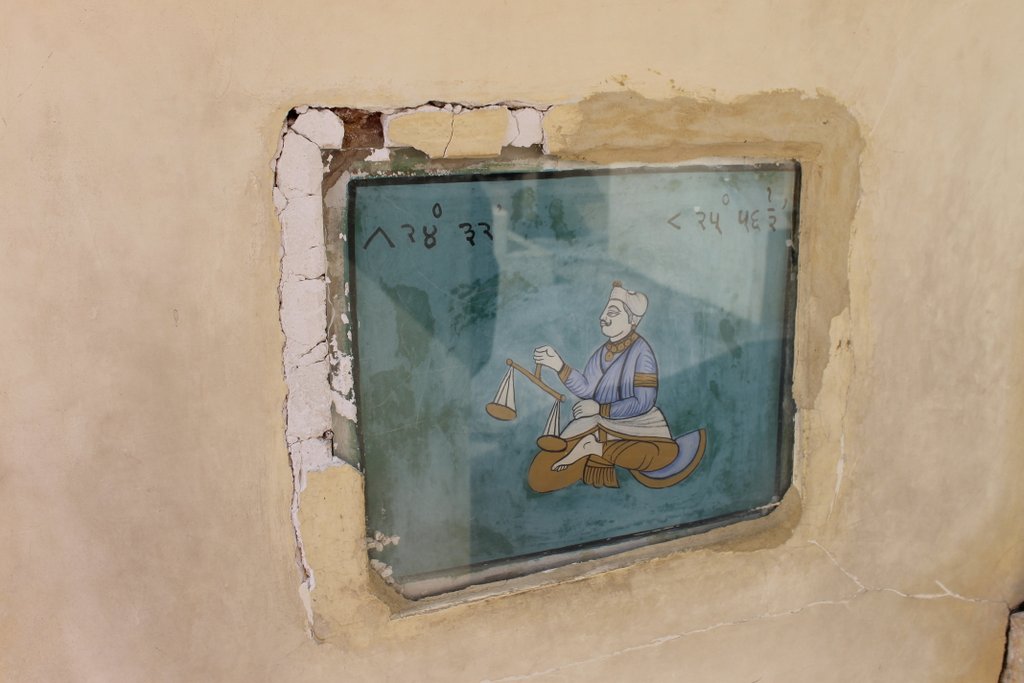 ∧ २४° ३२′ < २५° ५६ १/२′